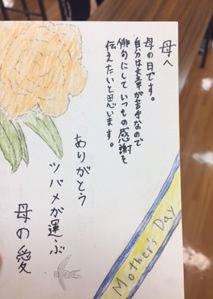 母へ
母の日です。
自分は文章が苦手なので
俳句にしていつもの感謝を
伝えたいと思います。
ありがとう
ツバメが運ぶ
母の愛
Mother's Day